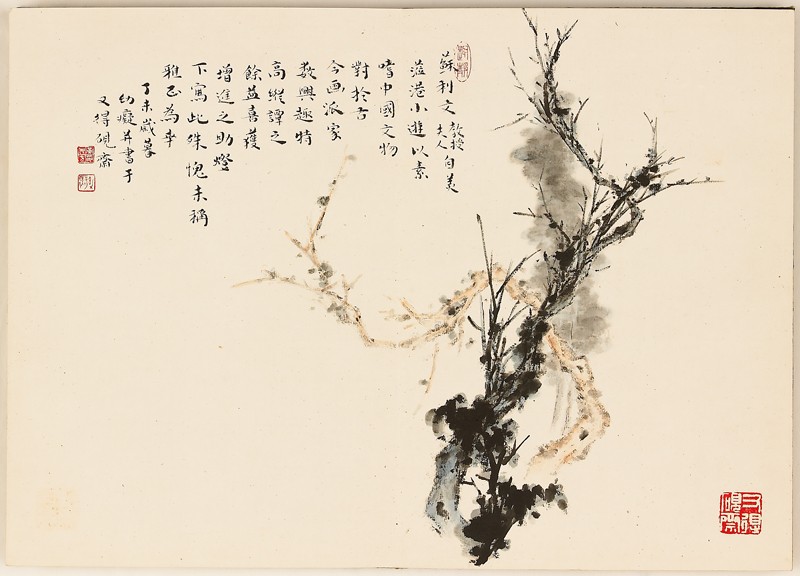 蘇利文教授夫人自美
蒞港小遊以素
嗜中國文物
對於古
今画派家
数興趣特
高縱譚之
餘益喜蒦
增進之助燈
下寫此殊愧未稱
雅正為幸
丁未歲暮
幼癡并書于
又得硯齋